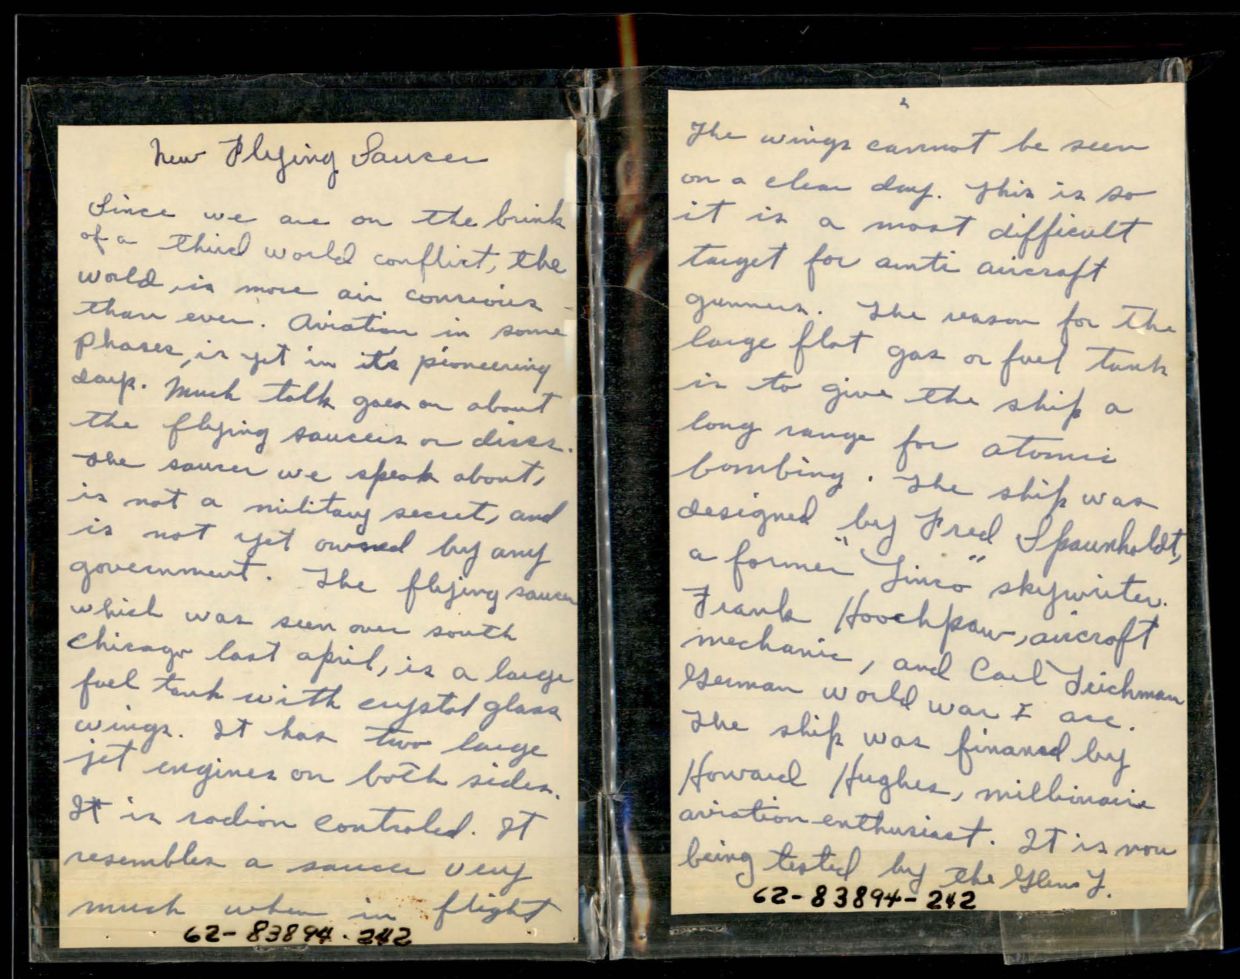 New Flying Saucer
Since we are on the brink
of a third world conflict, the
world is more air conscious
than ever. Aviation in some
phases, is yet in it's pioneering
days. Much talk goes on about
the flying saucers or discs.
The saucer we speak about,
is not a military secret, and
is not yet owned by any
government. The flying saucer
which was seen over south
Chicago last april, is a large
fuel tank with crystal glass
wings. It has two large
jet engines on both sides.
It is radion controled. It
resembles a saucer very
much when in flight
62-83894-242
2
The wings cannot be seen
on a clear day. This is so
it is a most difficult
target for anti aircraft
gunners. The reason for the
large flat gas or fuel tank
is to give the ship a
long range for atomic
bombing. The ship was
designed by Fred Spaunholdt,
a former "Sinco" skywriter.
Frank Hoochpaw, aircraft
mechanic, and Carl Teichman
German world war I ace.
The ship was financed by
Howard Hughes, millionaire
aviation enthusiast. It is now
being tested by the Glenn J.
62-83894-242